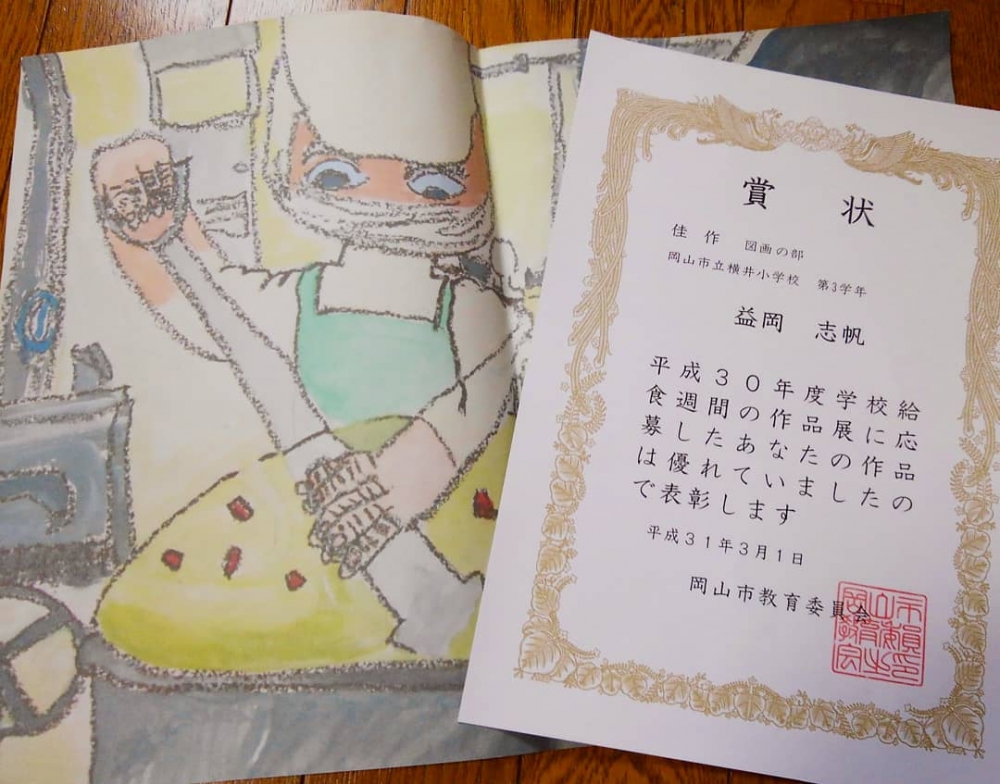 賞状
佳作 図画の部
岡山市立横井小学校 第3学年
益岡 志帆
平成30年度学校給
食週間の作品展に応
募したあなたの作品
は優れていましたの
で表彰します
平成31年3月1日
岡山市教育委員会